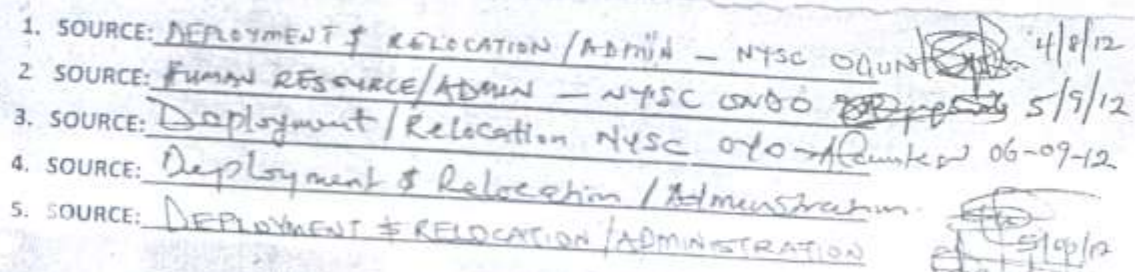 1. SOURCE: DEPLOYMENT & RELOCATION / ADMIN – NYSC OGUN 4/8/12
2 SOURCE: HUMAN RESOURCE/ADMIN – NYSC ONDO 5/9/12
3. SOURCE: Deployment / Relocation NYSC OYO 06-09-12
4. SOURCE: Deployment & Relocation / Admenstration
5. SOURCE: DEPLOYMENT & RELOCATION / ADMINISTRATION